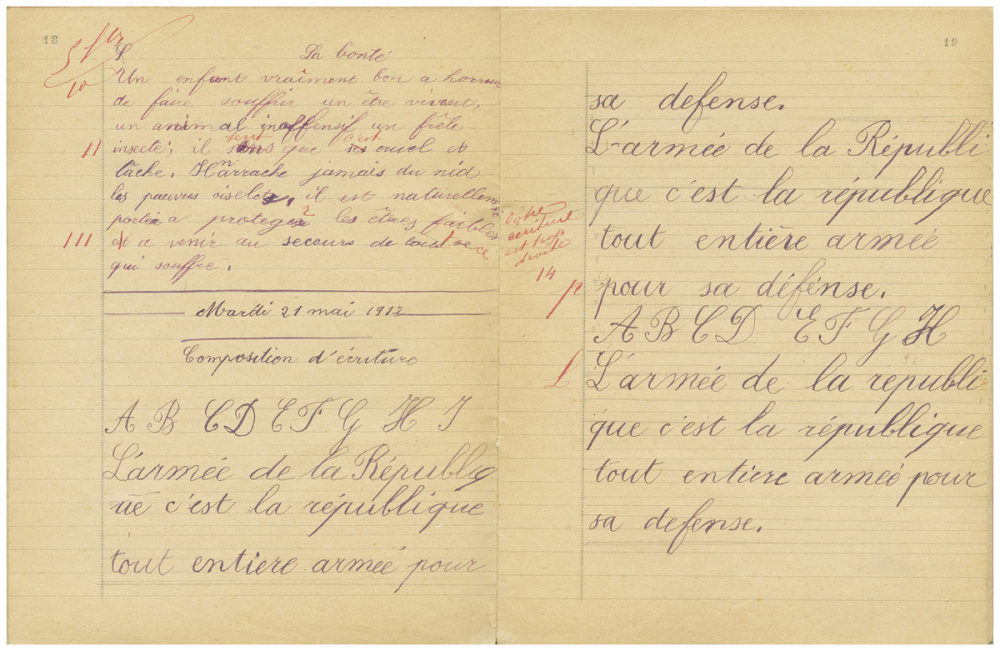 18
La bonté
Un enfant vraiment bon a horreur
de faire souffrir un être vivant,
un animal inoffensif un frêle
insecte; il sent que c'est cruel et
lâche. N'arrache jamais du nid
les pauvres oiselets, il est naturellement
porté a proteger les êtres faibles
et a venir au secours de tout ce
qui souffre.
11
111
10
Mardi 21 mai 1912
Composition d'écriture
A B C D E F G H I
L'armée de la Républiq
ue c'est la république
tout entiere armée pour
19
sa defense.
L'armée de la Républi
que c'est la république
tout entière armée
pour sa défénse.
A B C D E F G H
L'armée de la republi
que c'est la république
tout entiere armeé pour
sa defense.
Votre
écriture
est trop
droite
14
p
L